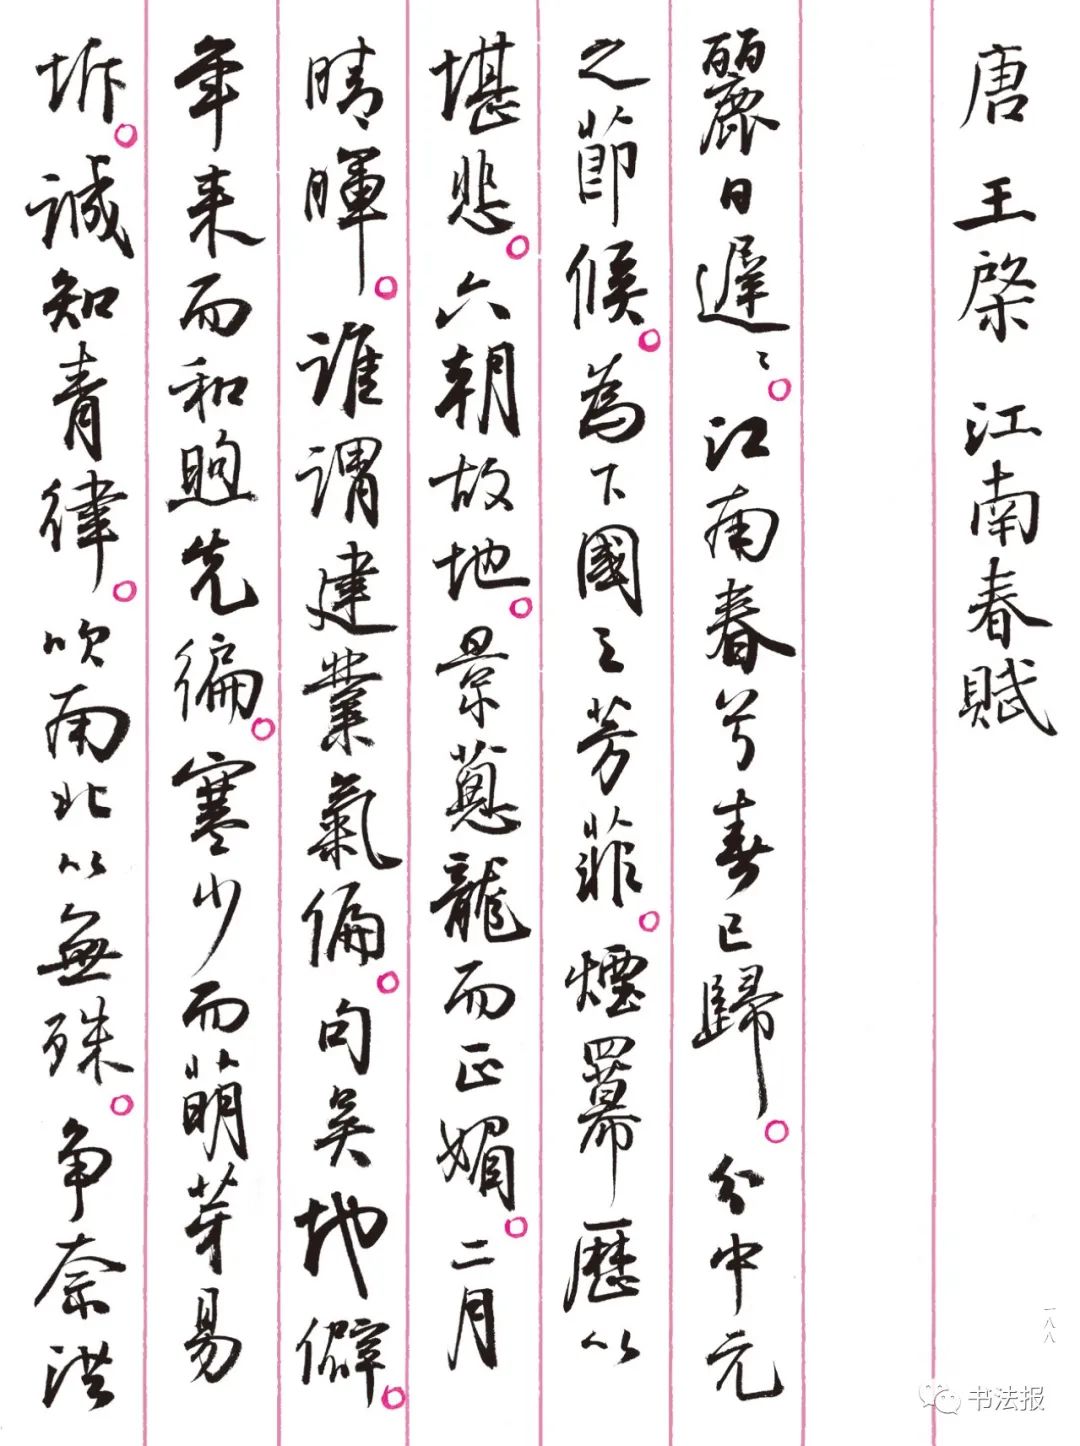 唐 王棨 江南春賦
麗日遲〻。江南春兮春已歸。分中元
之節候。為下國之芳菲。煙羃歷以
堪悲。六朝故地。景蔥龍而正媚。二月
晴暉。誰謂建業氣偏。句吳地僻。
年来而和煦先徧。寒少而萌芽易
坼。誠知青律。吹南北以無殊。争奈洪
一八八
书法报